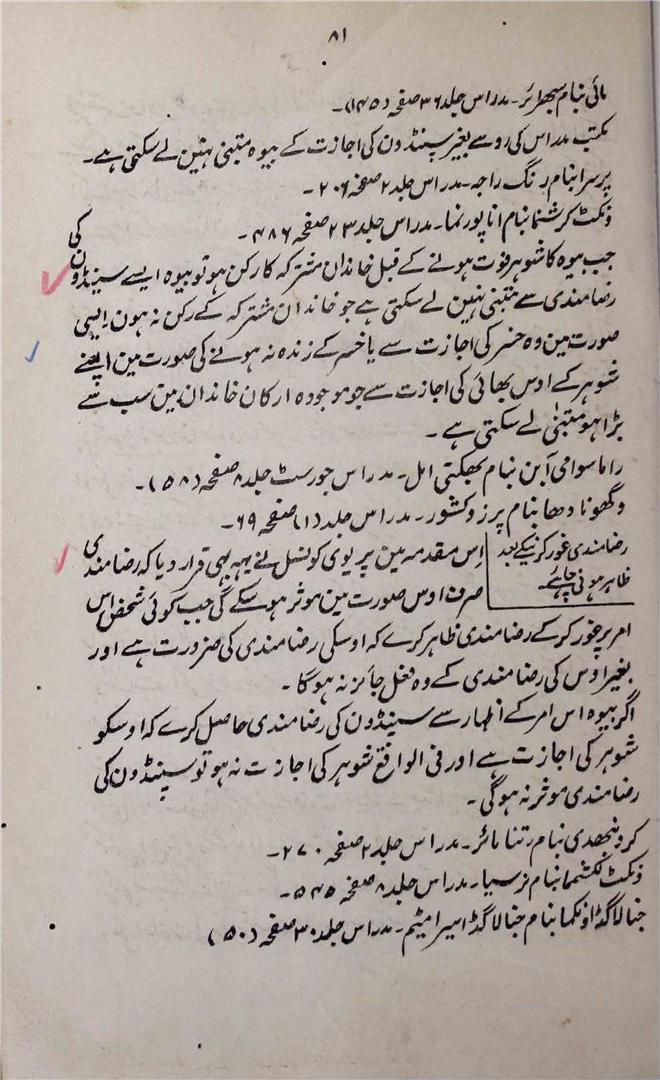 ۸۱
مائی بنام سبھرائر۔ مدراس جلد ۳۶ صفحہ (۱۴۵)۔
مکتب مدراس کی روسے بغیر سپنڈون کی اجازت کے بیوہ متبنی نہین لے سکتی ہے۔
پرسرا بنام رنگ راجہ۔ مدراس جلد ۲ صفحہ ۲۰۶۔
ونکٹ کرشنما بنام انا پورنما۔ مدراس جلد ۲۳ صفحہ ۴۸۶۔
جب بیوہ کا شوہر فوت ہونے کے قبل خاندان مشترکہ کا رکن ہو تو بیوہ ایسے سپنڈون کی
رضامندی سے متبنی نہین لے سکتی ہے جو خاندان مشترکہ کے رکن نہ ہون ایسی
صورت مین وہ خسر کی اجازت سے یا خسر کے زندہ نہ ہونے کی صورت مین اپنے
شوہر کے اوس بھائی کی اجازت سے جو موجودہ ارکان خاندان مین سب سے
بڑا ہو متبنیٰ لے سکتی ہے۔
راما سوامی آین بنام بھکتی امل۔ مدراس جورسٹ جلد ۸ صفحہ (۵۸)۔
وگھونادھا بنام پرزوکشور۔ مدراس جلد (۱) صفحہ ۶۹۔
رضامندی غور کرنیکے بعد ظاہر ہونی چاہئے۔
اس مقدمہ مین پریوی کونسل نے یہہ بھی قرار دیا کہ رضامندی
صرف اوس صورت مین موثر ہوسکے گی جب کوئی شخص اس
امر پر غور کرکے رضامندی ظاہر کرے کہ اوسکی رضامندی کی ضرورت ہے اور
بغیر اوس کی رضامندی کے وہ فعل جائز نہ ہوگا۔
اگر بیوہ اس امر کے اظہار سے سپنڈون کی رضامندی حاصل کرے کہ اوسکو
شوہر کی اجازت ہے اور فی الواقع شوہر کی اجازت نہ ہو تو سپنڈون کی
رضامندی موثر نہ ہوگی۔
کرونبھدی بنام رتنا مائر۔ مدراس جلد ۲ صفحہ ۲۷۰۔
ونکٹ لکشما بنام نرسیا۔ مدراس جلد ۸ صفحہ ۵۴۵۔
جنالاگڈا ونکما بنام جنالاگڈا سبرامنیم۔ مدراس جلد ۳۰ صفحہ (۵۰)